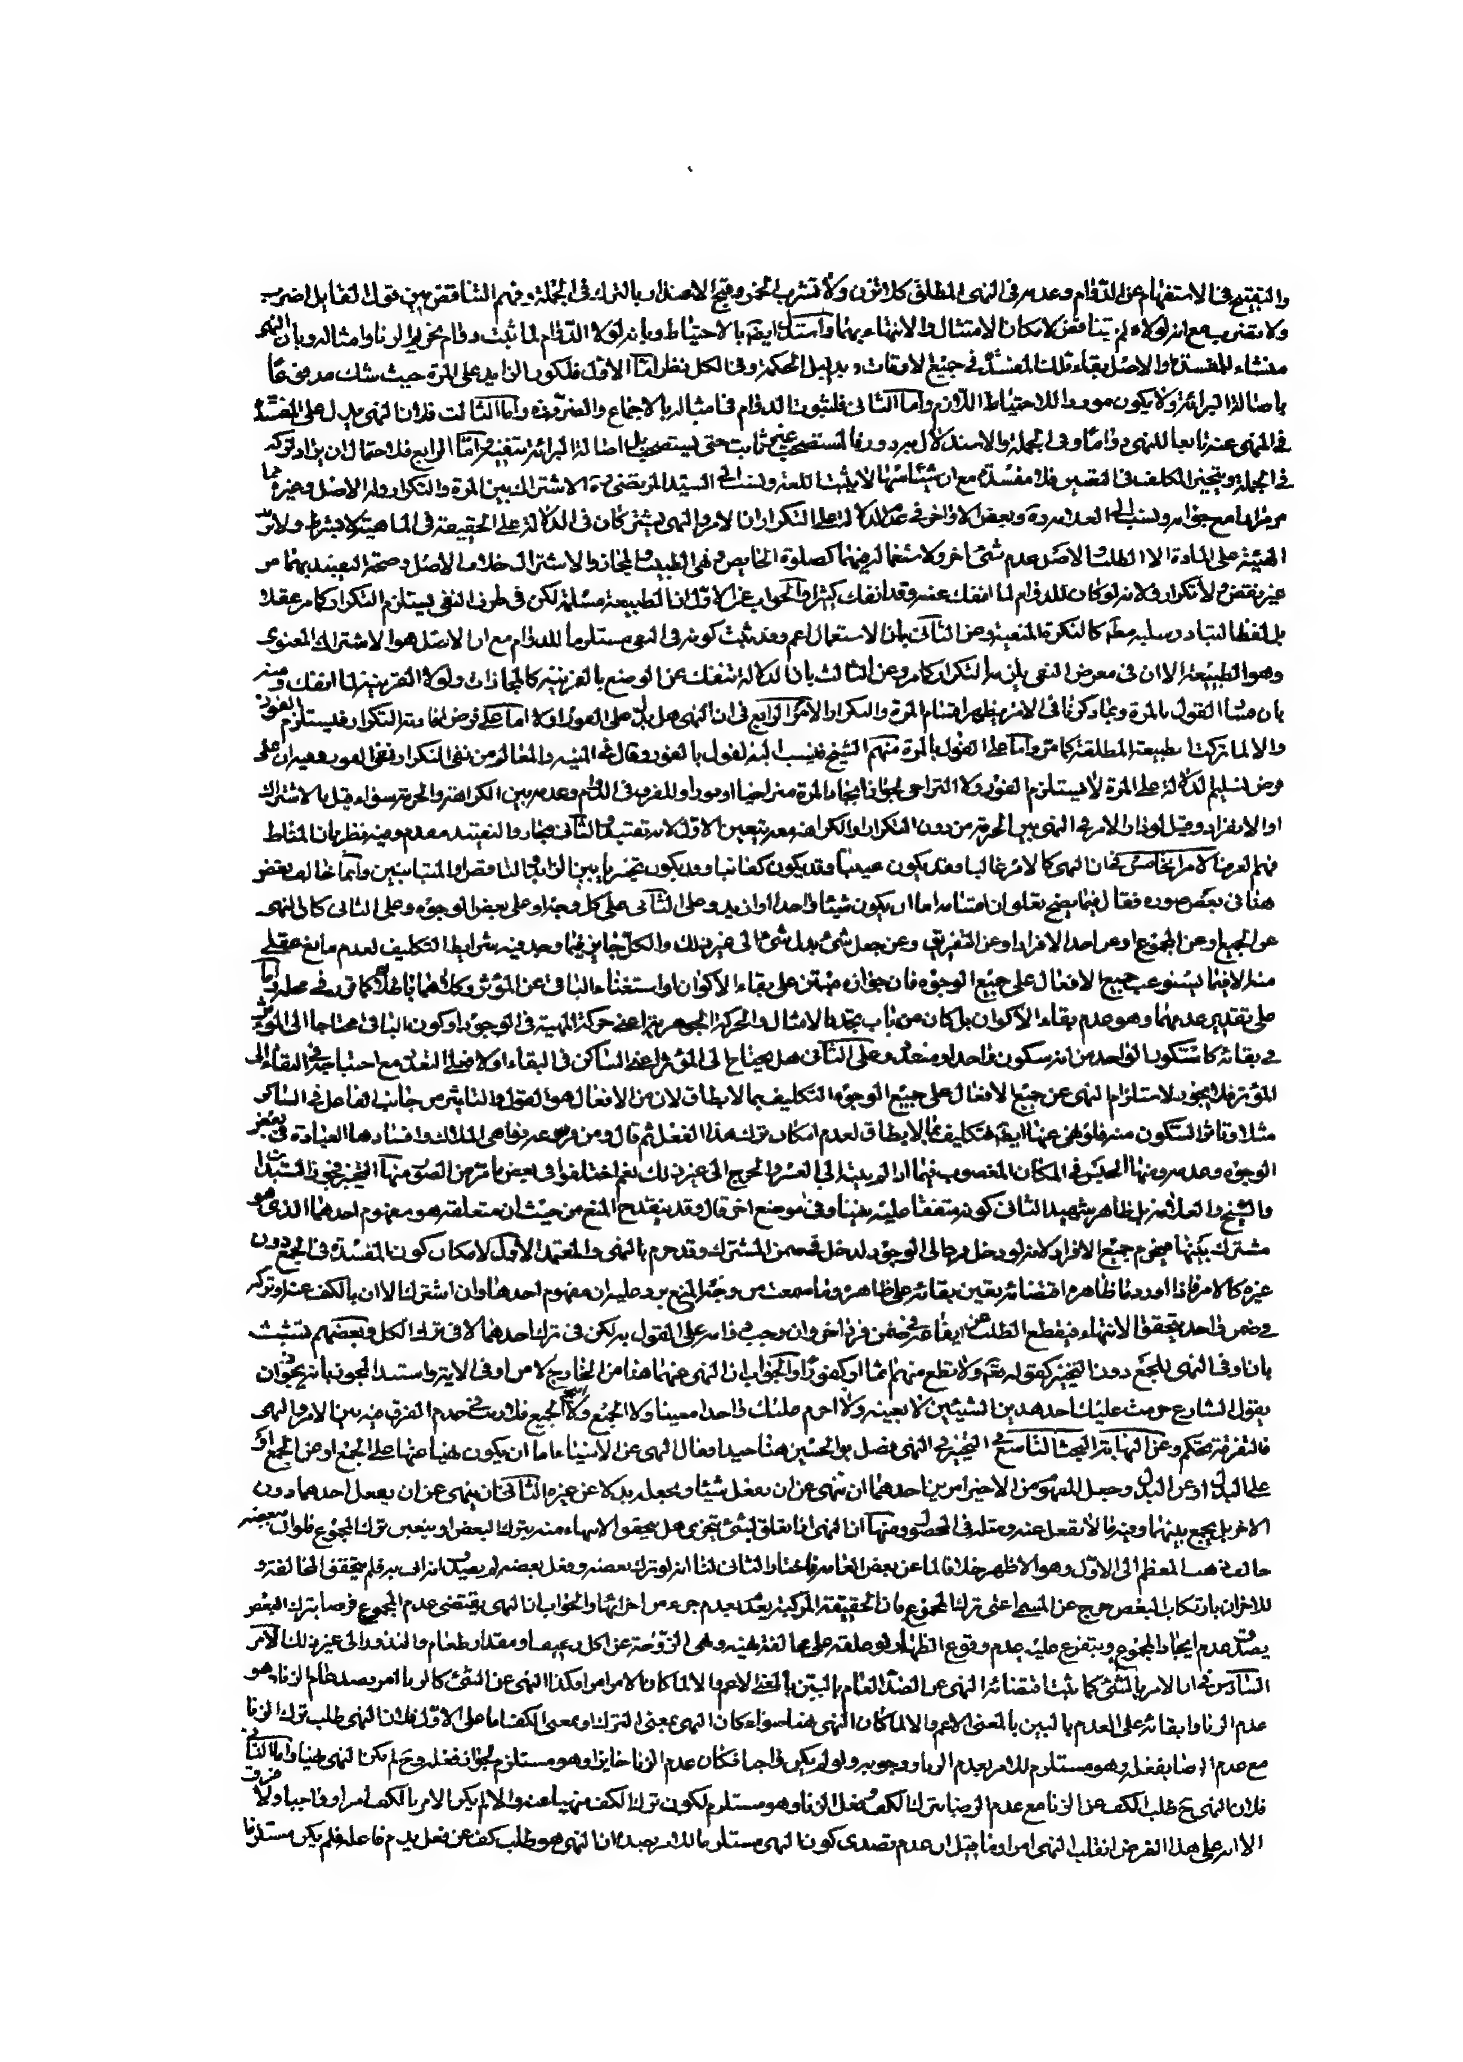 والتقبيح في الاستفهام عن الدوام وعدمه في النهى المطلق كلا تزن ولا تشرب الخمر وقبح الاضداد بالترك في الجملة وفهم التناقض بين قولك لقايل اضرب
ولا تضرب مع انه لولاه لم يتناقض لامكان الامتثال والانتهاء بهما واستدل ايضا بالاحتياط وبانه لولا الدوام لما ثبت دوام تحريم الزنا وامثاله وبان النهى
منشاء للمفسدة والاصل بقاء تلك المفسدة في جميع الاوقات وبدليل الحكمة وفي الكل نظر اما الاول فلكون الزايد على المرة حيث شك مدفوعا
باصالة البرائة ولا يكون موردا للاحتياط اللازم واما الثاني فلثبوت الدوام في امثاله بالاجماع والضرورة واما الثالث فلان النهى يدل على المفسدة
في المنهى عنه تابعا للنهى دواما وفي الجملة والاستدلال مردود فالمستصحب غير ثابت حتى يستصحب بل اصالة البرائة تنفيه واما الرابع فلاحتمال ان يراد تركه
في الجملة ويتخير المكلف في التعيين فلا مفسدة مع ان شيئا منها لا يثبت اللغة ونسب الى السيد المرتضى ره الاشتراك بين المرة والتكرار وله الاصل وغيره مما
مر في الامر مع جوابه ونسب الى العلامة ره وبعض الاواخر في عدم الدلالة على التكرار ان الامر والنهى يشتركان في الدلالة على الحقيقة في الماهية لا بشرط ولا يزيد
الهيئة على المادة الا الطلب والاصل عدم شئ اخر ولاستعماله فيهما كصلوة الحايض ونهى الطبيب والمجاز والاشتراك خلاف الاصل وصحة التقييد بهما من
غير نقض ولا تكرار ولانه لو كان للدوام لما انفك عنه وقد انفك كثيرا والجواب عن الاول ان الطبيعة مسلمة لكن في طرف النفى يستلزم التكرار كما مر عقلا
بل لفظا لتبادر سلبه مطلقا كالنكرة المنفية وعن الثاني بان الاستعمال اعم وقد ثبت كونه في النهى مستلزما للدوام مع ان الاصل هو الاشتراك المعنوى
وهو الطبيعة الا ان في معرض النفى يلزمها التكرار كما مر وعن الثالث بان الدلالة تنفك عن الوضع بالقرينة كالمجازات ولولا القرينة لما انفك ومنه
بان منشا القول بالمرة وبما ذكرنا في الامر يظهر اقسام المرة والتكرار الامر الرابع في ان النهى هل يدل على الفور او لا اما على فرض افادته التكرار فيستلزم الفور
والا لما تركت طبيعة المطلقة كما مر واما على القول بالمرة فمنهم الشيخ فنسب اليه القول بالفور وقال في المنية والمعالم من نفى التكرار نفى الفور وفيه ان على
فرض تسليم الدلالة على المرة لا يستلزم الفور ولا التراخى لجواز ايجاد المرة متراخيا او فورا وللفرق في الذم وعدمه بين الكراهة والحرمة سواء قيل بالاشتراك
او الانفراد وقيل لو دار الامر في النهى بين الحرمة من دون التكرار او الكراهة معه يتعين الاول لانه تقييد والثاني مجاز والتقييد مقدم وفيه نظر بان المناط
فهم العرف الامر الخامس في ان النهى كالامر غالبا وقد يكون عينيا وقد يكون كفائيا وقد يكون تخييريا بين الزايد والناقص والمتباينين وانما خالف بعض
هنا في بعض صوره فقال فيما يصح تعلق ان متعلقه اما ان يكون شيئا واحدا او ازيد وعلى الثاني على كل وجه او على بعض الوجوه وعلى الثاني كان النهى
عن الجميع او عن المجموع او عن احد الافراد او عن التفريق وعن جعل شئ بدل شئ الى غير ذلك والكل جايز فيما وجد فيه شرايط التكليف لعدم مانع عقلى
منه الا فيما يستوعب جميع الافعال على جميع الوجوه فان جوازه مبتن على بقاء الاكوان واستغناء الباقى عن المؤثر وكلاهما باطلان كما قرر في محله واما
على تقدير عدمهما وهو عدم بقاء الاكوان بل كان من باب تجدد الامثال والحركة الجوهرية اعنى حركة المهية في الوجود او كون الباقى محتاجا الى المؤثر
في بقائه كالسكون الواحد من انه سكون واحد او متعدد وعلى الثاني هل يحتاج الى المؤثر اعنى الساكن في البقاء او لا فعلى التعدد مع احتياجه في البقاء الى
المؤثر فلا يجوز لاستلزام النهى عن جميع الافعال على جميع الوجوه التكليف بما لا يطاق لان من الافعال هو القول والتاثير من جانب الفاعل في الساكن
مثلا وتاثر السكون منه فلو نهى عنهما ايضا لكلف بما لا يطاق لعدم امكان ترك هذا الفعل ثم قال ومن فرض عدم نواهى الملاك وافسادها العبادة في بعض
الوجوه وعدمه ومنها الحبس في المكان المغصوب فيهما اذا لم ينته الى العسر والحرج الى غير ذلك نعم اختلفوا في بعض ما مر من الصور منها التخيير فجوزه السيد
والشيخ والعلامة بل ظاهر تمهيد الثاني كونه متفقا عليه بيننا وفي موضع اخر قال وقد يقدح المنع من حيث ان متعلقه هو مفهوم احدهما الذى هو
مشترك بينهما فيحرم جميع الافراد لانه لو دخل فرد الى الوجود لدخل في ضمن المشترك وقد حرم بالنهى والمعتمد الاول لامكان كون المفسدة في الجمع دون
غيره كالامر فاذا اورد ما ظاهره اقتضائه يتعين بقائه على ظاهره وما سمعت من وجه المنع يرد عليه ان مفهوم احدهما وان اشترك الا ان بالكف عنه او تركه
في ضمن واحد يتحقق الانتهاء فيقطع الطلب عن ايقاعه في ضمن فرد اخر وان وجب دوامه على القول به لكن في ترك احدهما لا في ترك الكل وبعضهم تشبث
بان او في النهى للجمع دون التخيير كقوله تعالى ولا تطع منهم اثما او كفورا والجواب ان النهى عنهما هنا من الخارج لا من او في الاية واستدل المجوز بانه يجوز ان
يقول الشارع حرمت عليك احد هذين الشيئين لا بعينه ولا احرم عليك واحدا معينا ولا الجميع ولا المجموع فلا ريب في عدم الفرق فيه بين الامر والنهى
فالتفرقة تحكم وعن النهاية البحث التاسع في التخيير في النهى فصل ابو الحسين هنا جيدا فقال النهى عن الاشياء اما ان يكون نهيا عنها على الجمع او عن الجمع او
على البدل او عن البدل وجعل المفهوم من الاخير امرين احدهما ان ينهى عن ان يفعل شيئا ويجعله بدلا عن غيره الثاني ان ينهى عن ان يفعل احدهما دون
الاخر بل يجمع بينهما وفيه ما لا يفعل عنه ومثله في المحصول ومنها ان النهى اذا تعلق بشئ يتجزى هل يتحقق الانتهاء منه بترك البعض او يتعين ترك المجموع فلو ان ببعضه
خالف ذهب المعظم الى الاول وهو الاظهر خلافا لما عن بعض العامة فاختار الثاني لنا انه لو ترك بعضه وفعل بعضه لم يصدق انه اتى به فلم يتحقق المخالفة و
للاخر ان بارتكاب البعض خرج عن المسمى اعنى ترك المجموع فان الحقيقة المركبة يعدم بعدم جزء من اجزائها والجواب ان النهى يقتضى عدم المجموع فمع صدق ترك البعض
يصدق عدم ايجاد المجموع ويتفرع عليه عدم وقوع الظهار لو علقه على مخالفة نهيه ونهى الزوجة عن اكل رغيف او مقدار طعام والنذر الى غير ذلك الامر
السادس في ان الامر بالشئ كما يثبت اقتضائه النهى عن الضد العام بالبين بالمعنى الاعم والا لما كان الامر امرا وكذا النهى عن الشئ كالزنا امر بضده العام الزنا وهو
عدم الزنا وابقائه على العدم بالبين بالمعنى الاعم والا لما كان النهى نهيا سواء كان النهى بمعنى الترك او بمعنى الكف اما على الاول فلان النهى طلب ترك الزنا
مع عدم الرضا بفعله وهو مستلزم للامر بعدم الزنا ووجوبه ولو لم يكن واجبا فكان عدم الزنا جايزا وهو مستلزم لجواز فعله وح لم يكن النهى نهيا واما الثاني
فلان النهى ح طلب الكف عن الزنا مع عدم الرضا بترك الكف وفعل الزنا وهو مستلزم لكون ترك الكف منهيا عنه والا لم يكن الامر بالكف امرا وواجبا ولا فرق
الا انه على هذا الفرض انقلب النهى امرا وما قيل ان عدم تصدى كون النهى مستلزما للامر بضده ان النهى هو طلب كف عن فعل يذم فاعله فلم يكن مستلزما